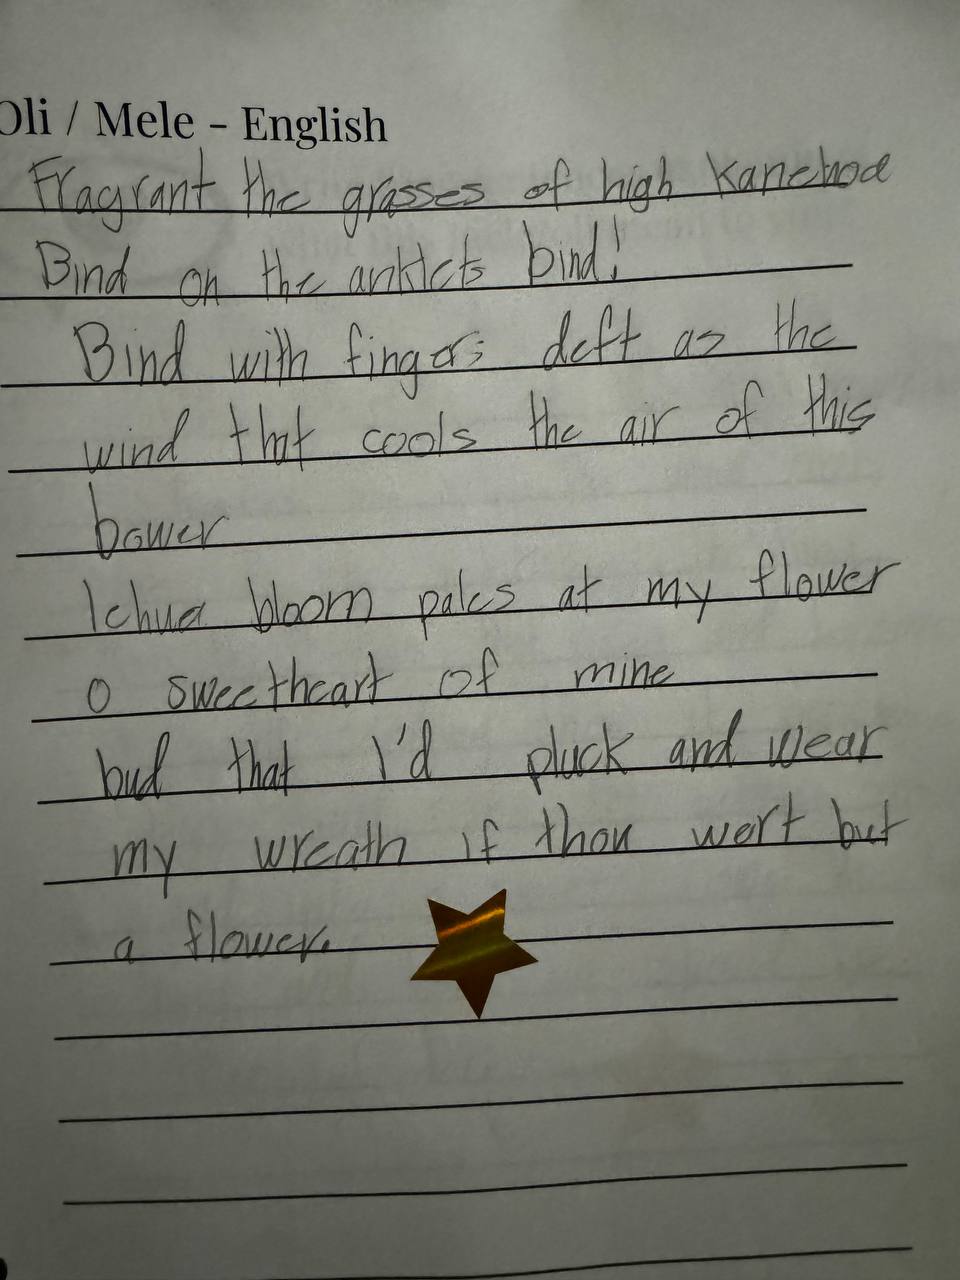 Oli / Mele - English
Fragrant the grasses of high Kanehoe
Bind on the anklets bind!
Bind with fingers deft as the
wind that cools the air of this
bower
lehua bloom pales at my flower
O sweetheart of mine
bud that I'd pluck and wear
my wreath if thou wert but
a flower.